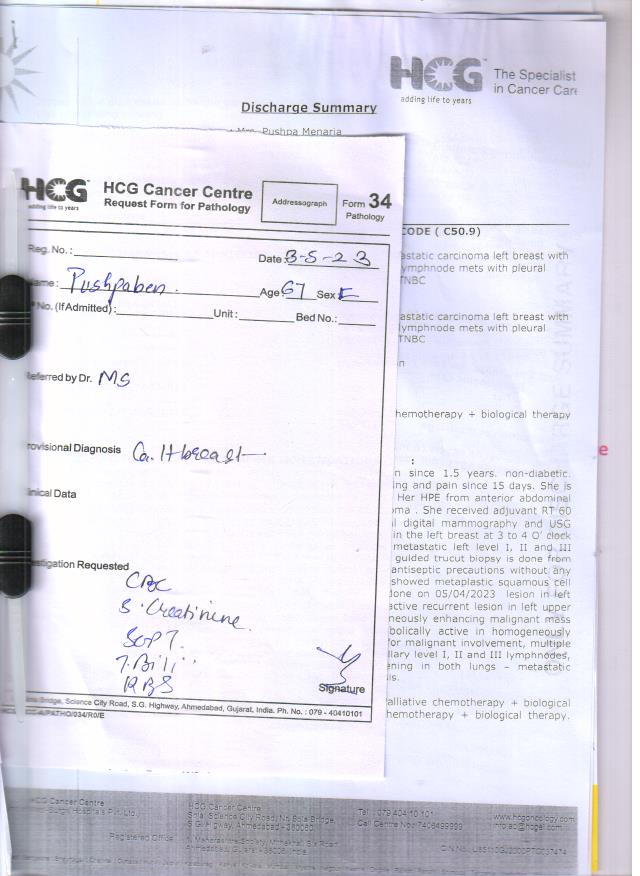 HCG
adding life to years
The Specialist
in Cancer Care
Discharge Summary
: Mrs. Pushpa Menaria
HCG
adding life to years
HCG Cancer Centre
Request Form for Pathology
Addressograph
Form 34
Pathology
Reg. No.:
Date: 3-5-23
Name: Pushpaben
Age 67 Sex F
No. (If Admitted) : Unit : Bed No.:
Referred by Dr. MS
Provisional Diagnosis Ca. lt breast
Clinical Data
Investigation Requested
CBC
S. Creatinine
SGPT.
T. Bili
RBS
Signature
Bridge, Science City Road, S.G. Highway, Ahmedabad, Gujarat, India. Ph. No. : 079 - 40410101
/PATHO/034/R0/E
CODE ( C50.9)
astatic carcinoma left breast with
ymphnode mets with pleural
TNBC
astatic carcinoma left breast with
lymphnode mets with pleural
TNBC
n
hemotherapy + biological therapy
:
n since 1.5 years. non-diabetic.
ing and pain since 15 days. She is
Her HPE from anterior abdominal
oma . She received adjuvant RT 60
l digital mammography and USG
in the left breast at 3 to 4 O' clock
metastatic left level I, II and III
guided trucut biopsy is done from
antiseptic precautions without any
showed metaplastic squamous cell
done on 05/04/2023 lesion in left
active recurrent lesion in left upper
neously enhancing malignant mass
bolically active in homogeneously
for malignant involvement, multiple
llary level I, II and III lymphnodes,
ening in both lungs – metastatic
is.
Palliative chemotherapy + biological
hemotherapy + biological therapy.
e
HCG Cancer Centre
HCG Cancer Centre
Sola, Science City Road, Nr. Sola Bridge,
S.G. Higway, Ahmedabad - 380060
Tel : 079 404 10 101
Call Centre No.: 7406499999
www.hcgoncology.com
Registered Office
1, Maharashtra Society, Mithakhali Six Road